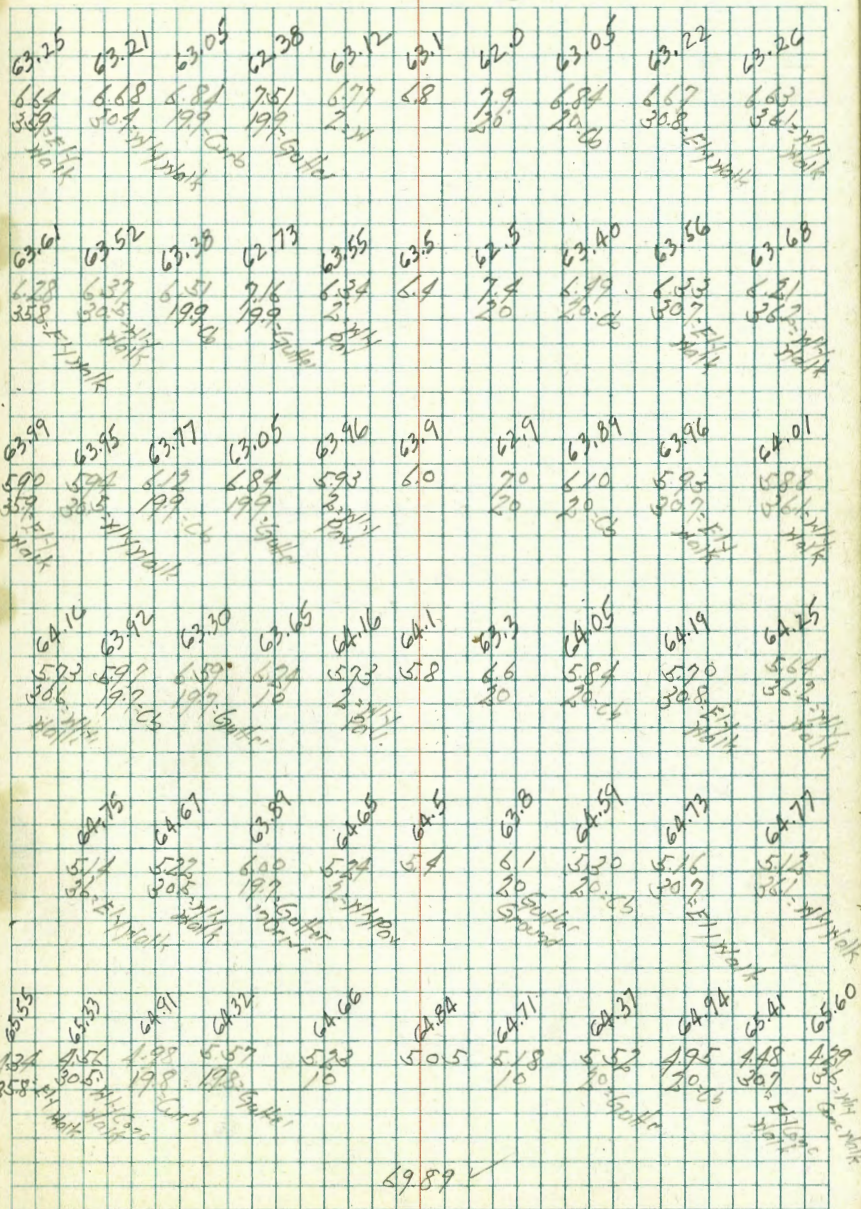 63.25 63.21 63.05 62.38 63.12 63.1 62.0 63.05 63.22 63.26
6.64 6.68 6.84 7.51 6.77 6.8 7.9 6.84 6.67 6.63
35.9=Ely 30.4=Wly Walk 19.9=Curb 19.9=Gutter 2=W 20 20=Cb 30.8=Ely Walk 36.1=Wly
Walk Walk
63.61 63.52 63.38 62.73 63.55 63.5 62.5 63.40 63.56 63.68
6.28 6.37 6.51 7.16 6.34 6.4 7.4 6.49 6.33 6.21
35.8=Ely Walk 30.5=Wly 19.9=Cb 19.9=Gutter 2=Wly 20 20=Cb 30.7=Ely 36.2=Wly
Walk Pav Walk Walk
63.99 63.95 63.77 63.05 63.96 63.9 62.9 63.89 63.96 64.01
5.90 5.94 6.12 6.84 5.93 6.0 7.0 6.10 5.93 5.88
35.9=Ely 30.5=Wly Walk 19.9=Cb 19.9=Gutter 2=Wly 20 20=Cb 30.7=Ely 36.1=Wly
Walk Pav. Walk Walk
64.16 63.92 63.30 63.65 64.16 64.1 63.3 64.05 64.19 64.25
5.73 5.97 6.59 6.24 5.73 5.8 6.6 5.84 5.70 5.64
30.6=Wly 19.7=Cb 19.7=Gutter 10 2=Wly 20 20=Cb 30.8=Ely 36.2=Wly
Walk Pav. Walk Walk
64.75 64.67 63.89 64.65 64.5 63.8 64.59 64.73 64.77
5.14 5.22 6.00 5.24 5.4 6.1 5.30 5.16 5.12
36=Ely Walk 30.5=Wly 19.7=Gutter 2=Wly Pav 20 Gutter 20=Cb 30.7=Ely Walk 36.1=Wly Walk
Walk in Drive Ground
65.55 65.33 64.91 64.32 64.66 64.84 64.71 64.37 64.94 65.41 65.60
4.34 4.56 4.98 5.57 5.23 5.05 5.18 5.52 4.95 4.48 4.29
35.8=Ely 30.5=Wly Conc 19.8=Curb 19.8=Gutter 10 10 20=Gutter 20=Cb 30.7=Ely Conc 36=Wly
Walk Walk Walk Conc Walk
69.89 ✓